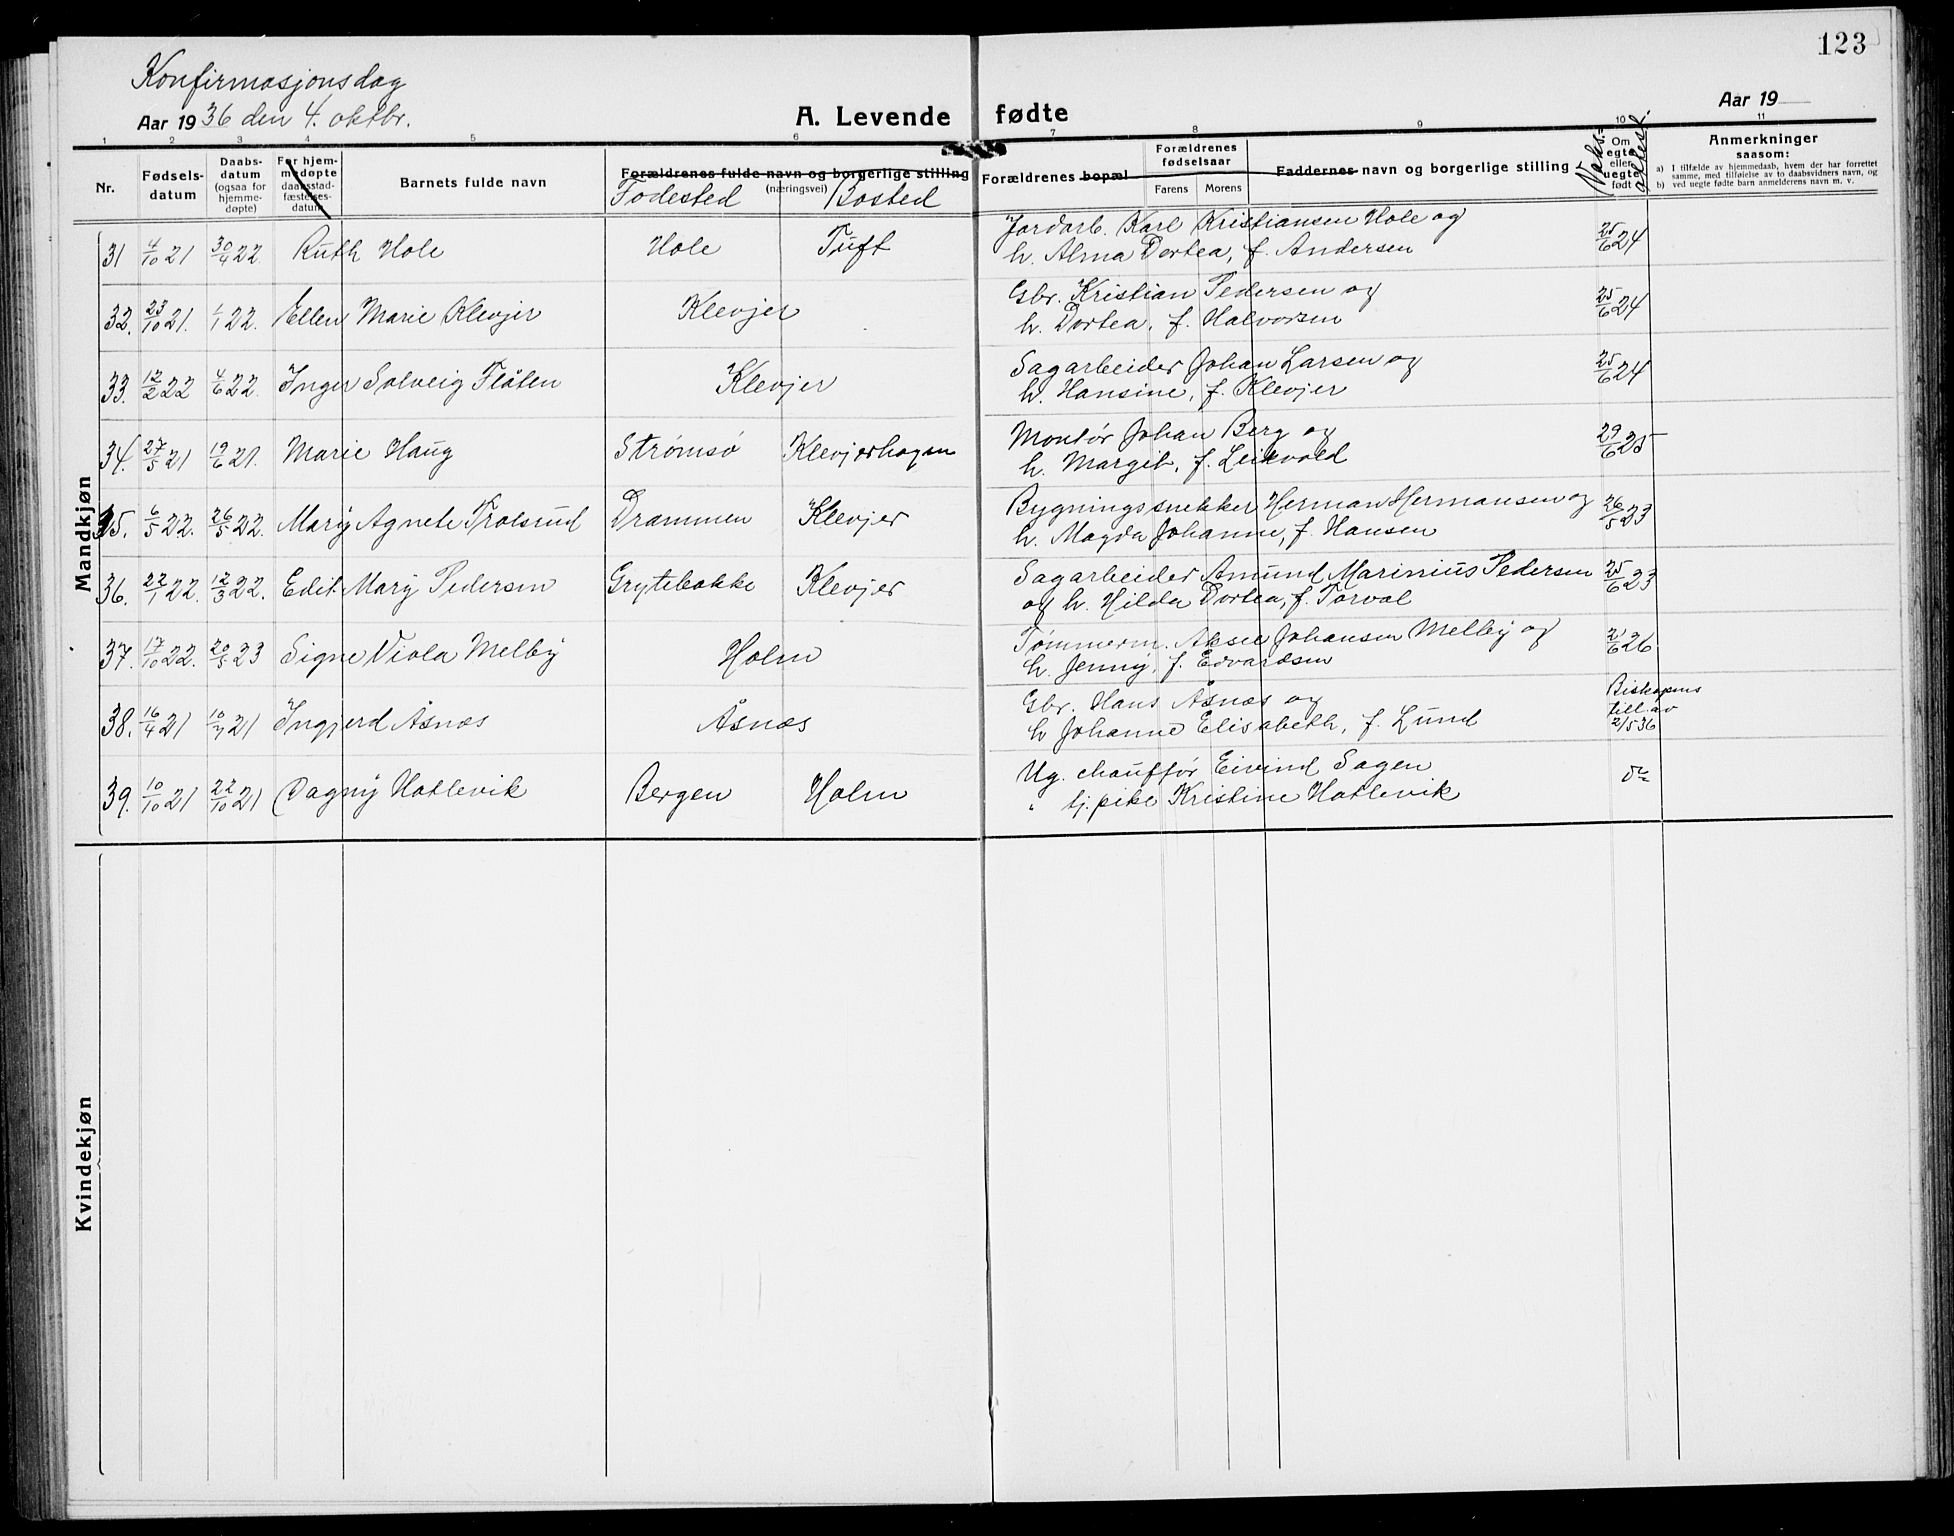 123
Konfirmasjonsdag
Aar 1936 den 4. oktbr.
A. Levende fødte
Aar 19
1 2 3 4 5 6 7 8 9 10 11
Nr.
Fødsels-
datum
Daabs-
datum
(ogsaa for
hjemme-
døpte)
For hjem-
medøpte
daabsstad-
fæstelses-
datum
Barnets fulde navn
Forældrenes fulde navn og borgerlige stilling
(næringsvei)
Fødested Bosted
Forældrenes bopæl
Forældrenes
fødselsaar
Farens Morens
Faddernes navn og borgerlige stilling
Vaks.-
attest.
Om
egte
eller
uegte
født
Anmerkninger
saasom:
a) I tilfælde av hjemmedaab, hvem der har forrettet
samme, med tilføielse av to daabsvidners navn, og
b) ved uegte fødte barn anmelderens navn m. v.
Mandkjøn
31 4/10 21 30/4 22 Ruth Hole Hole Tuft Jordarb. Karl Kristiansen Hole og 25/6 24
h. Alma Dortea, f. Andersen
32. 23/10 21. 1/1 22. Ellen Marie Klevjer Klevjer Gbr. Kristian Pedersen og 25/6 24
h. Dortea, f. Halvorsen
33. 12/2 22 4/6 22. Inger Solveig Flålen Klevjer Sagarbeider Johan Larsen og 25/6 24
h. Hansine, f. Klevjer
34. 27/5 21 19/6 21. Marie Haug Strømsø Klevjerhagen Montør Johan Berg og 29/6 25
h. Margit, f. Leikvold
35. 6/5 22. 26/5 22. Mary Agnete Trolsrud Drammen Klevjer Bygningssnekker Herman Hermansen og 26/5 23
h. Magda Johanne, f. Hansen
36. 22/1 22. 12/3 22. Edit Mary Pedersen Grytebakke Klevjer Sagarbeider Amund Marinius Pedersen 25/6 23
og h. Hilda Dortea, f. Torval
37. 17/10 22. 20/5 23 Signe Viola Melby Holm Tømmerm. Aksel Johansen Melby og 21/6 26
h. Jenny, f. Edvardsen
38. 16/4 21 10/7 21 Ingjerd Åsnæs Åsnæs Gbr. Hans Åsnæs og Biskopens
h Johanne Elisabeth, f. Lund till. av
2/5 36
39. 10/10 21 22/10 21 Dagny Hatlevik Bergen Holm Ug. chauffør Eivind Sagen do
" tj. pike Kristine Hatlevik
Kvindekjøn